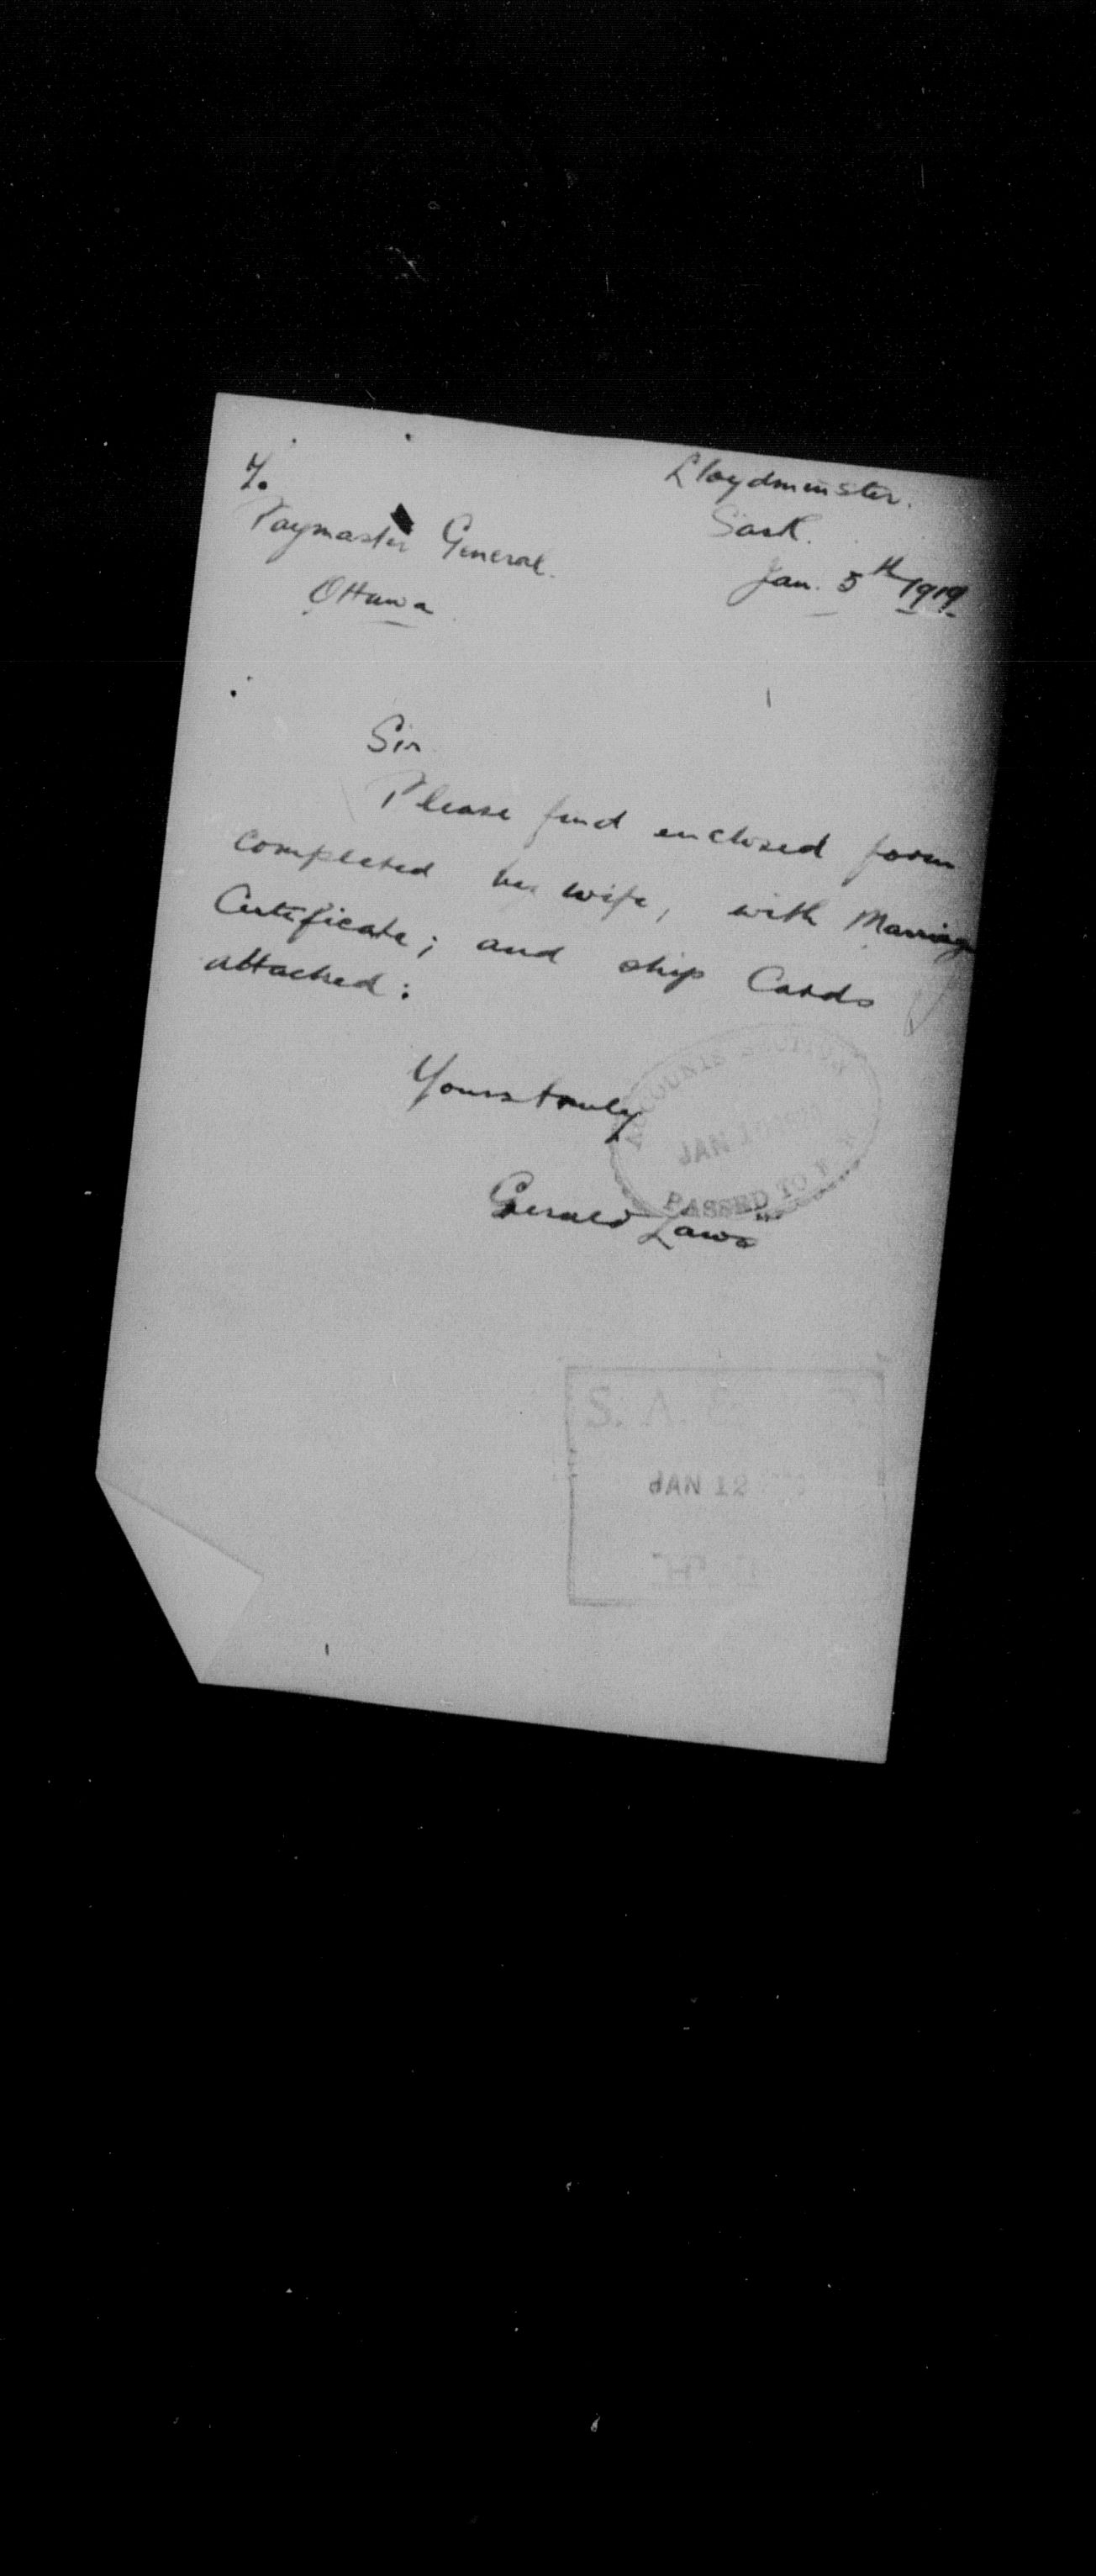 Lloydminster.
Sask.
Jan. 5th 1919.
To
Paymaster General.
Ottawa
Sir
Please find enclosed form
completed by wife, with Marriage
Certificate; and ship Cards
attached:
Yours truly
Gerald Laws
ACCOUNTS SECTION
JAN
PASSED TO
S. A.
JAN 12